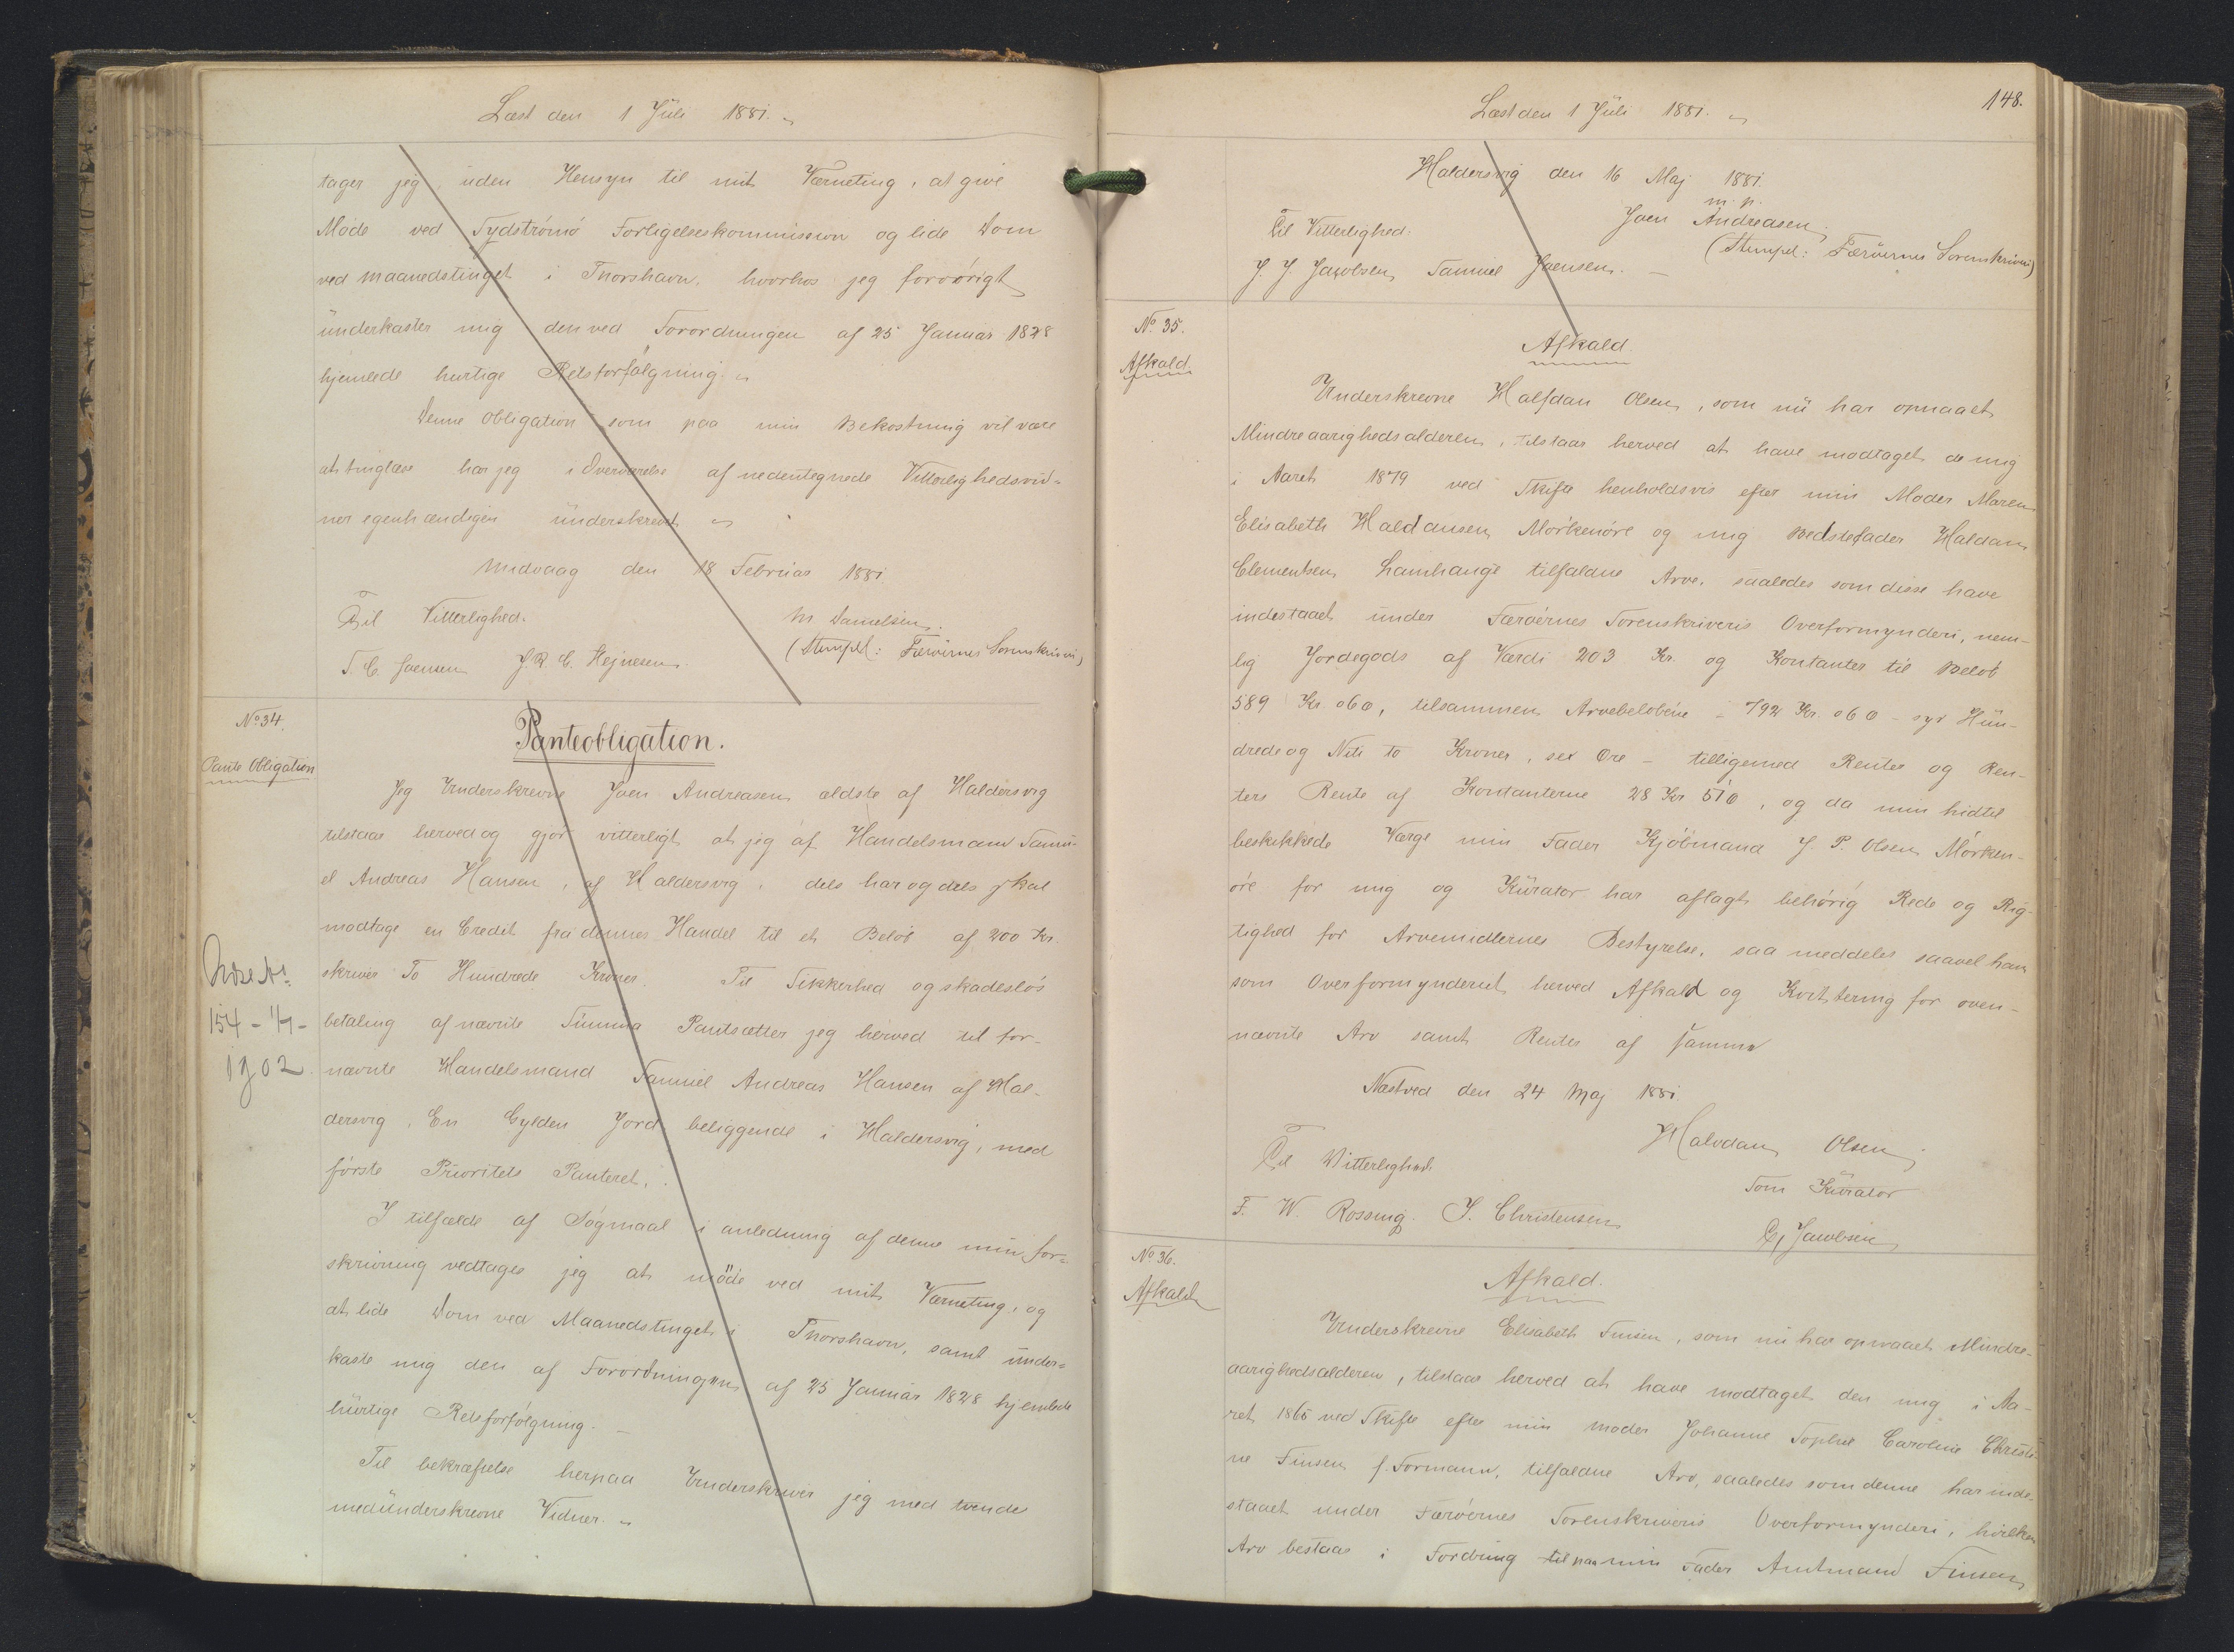 Læst den 1 Juli 1881.
tager jeg, uden Hensyn til mit Værneting, at give
Møde ved Sydstrømø Forligelseskommission og lide Dom
ved Maanedstinget i Thorshavn, hvorhos jeg forøvrigt
underkaster mig den ved Forordningen af 25 Januar 1828
hjemlede hurtige Retsforfølgning.
Denne Obligation som paa min Bekostning vil være
at tinglæse har jeg i Overværelse af nedentegnede Vitterlighedsvid-
ner egenhændigen underskrevet
Midvaag den 18 Februar 1881.
Til Vitterlighed.
M Danielsen.
J. C. Joensen J. R. C. Hejnesen.
(Stempel: Færøernes Sorenskriveri)
No. 34.
Pante Obligation
Panteobligation.
Jeg Underskrevne Joen Andreasen ældste af Haldersvig
tilstaar herved og gjør vitterligt at jeg af Handelsmand Samu-
el Andreas Hansen, af Haldersvig, dels har og dels skal
modtage en Credit fra dennes Handel til et Beløb af 200 Kr.
skriver To Hundrede Kroner. Til Sikkerhed og skadesløs
betaling af nævnte Summa Pantsætter jeg herved til for-
nævnte Handelsmand Samuel Andreas Hansen af Hal-
dersvig, En Gylden Jord beliggende i Haldersvig, med
første Prioritets Panteret.
I tilfælde af Søgmaal i anledning af denne min for-
skrivning vedtager jeg at møde ved mit Værneting, og
at lide Dom ved Maanedstinget i Thorshavn, samt under-
kaste mig den af Forordningen af 25 Januar 1828 hjemlede
hurtige Retsforfølgning.
Til bekræftelse herpaa Underskriver jeg med tvende
medunderskrevne Vidner.
154 - 1/7 -
1902.
148.
Læst den 1 Juli 1881.
Haldersvig den 16 Maj 1881.
m. p.
Til Vitterlighed:
Joen Andreasen.
J. J. Jacobsen Samuel Joensen.
(Stempel: Færøernes Sorenskriveri)
No. 35.
Afkald.
Afkald
Underskrevne Halfdan Olsen, som nu har opnaaet
Mindreaarighedsalderen, tilstaar herved at have modtaget de mig
i Aaret 1879 ved Skifte henholdsvis efter min Moder Maren
Elisabeth Haldansen Mørkenøre og mig Bedstefader Haldan
Clementsen Lamhauge tilfaldne Arve, saaledes som disse have
indestaaet under Færøernes Sorenskriveris Overformynderi, nem-
lig Jordegods af Værdi 203 Kr. og Kontanter til Beløb
589 Kr 06 Ø, tilsammen Arvebeløbene - 792 Kr. 06 Ø - syv Hun-
drede og Niti to Kroner, sex Øre - tilligemed Renter og Ren-
ters Rente af Kontanterne 28 Kr 51 Ø, og da min hidtil
beskikkede Værge min Fader Kjøbmand J. P. Olsen Mørken-
øre for mig og Kurator har aflagt behørig Rede og Rig-
tighed for Arvemidlernes Bestyrelse, saa meddeles saavel ham
som Overformynderiet herved Afkald og Kvittering for oven-
nævnte Arv samt Renter af samme
Næstved den 24 Maj 1881
Halvdan Olsen
Til Vitterlighed
Som Kurator
F. W. Rossing. J. Christensen
C, Jacobsen
No. 36.
Afkald
Afkald.
Underskrevne Elisabeth Finsen, som nu har opnaaet Mindre-
aarighedsalderen, tilstaar herved at have modtaget den mig i Aa-
ret 1865 ved Skifte efter min Moder Johanne Sophie Caroline Christi-
ne Finsen f. Formann, tilfaldne Arv, saaledes som denne har inde-
staaet under Færøernes Sorenskriveris Overformynderi, hvilken
Arv bestaar i Fordring til paa min Fader Amtmand Finsen